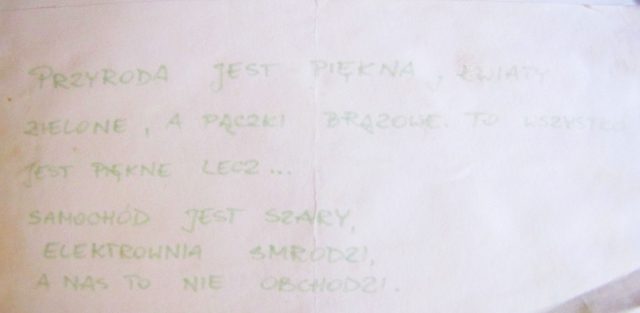 PRZYRODA JEST PIĘKNA, KWIATY
ZIELONE, A PĄCZKI BRĄZOWE. TO WSZYSTKO
JEST PIĘKNE LECZ...
SAMOCHÓD JEST SZARY,
ELEKTROWNIA SMRODZI,
A NAS TO NIE OBCHODZI.